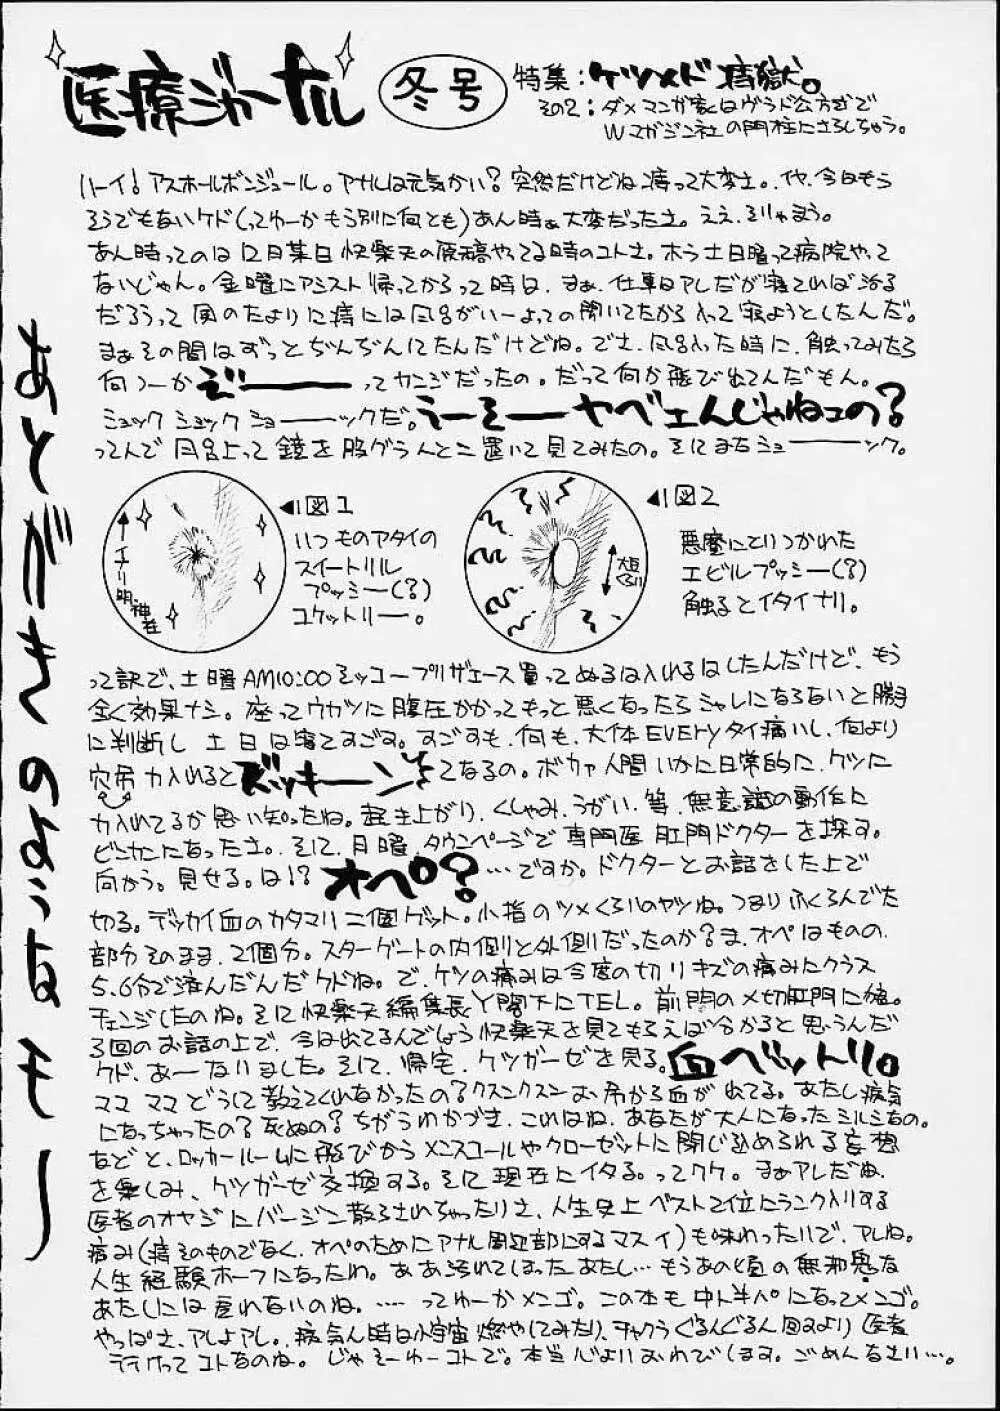 医療ジャーナル 冬号 特集：ケツメド痔獄。
その2：ダメマンガ家はヴラド公方式で
Wマガジン社の門柱にさらしちゃう。
ハーイ！アスホールボンジュール。アナルは元気かい？突然だけどね痔って大変さ。イヤ、今日もう
そうでもないケド(ってゆーかもう別に何とも)あん時ぁ大変だったさ。ええ、そりゃもう。
あん時ってのは12月某日快楽天の原稿やってる時のコトさ。ホラ土日曜って病院やって
ないじゃん。金曜にアシスト帰ってからって時は、まぁ、仕事はアレだが寝てれば治る
だろうって風のたよりに痔には風呂がいーよっての聞いてたから入って寝ようとしたんだ。
まぁその間はずっとぢんぢんしてたんだけどね。でさ、風呂入った時に、触ってみたら
何つーかぞーーーってカンジだったの。だって何か飛び出てんだもん。
ショック ショック ショーーックだ。うーそーヤベェんじゃねェの？
ってんで風呂上って鏡を股グラんとこ置いて見てみたの。そしてまたショーーーック。
↑チリ明神在
◀図1
いつものアタイの
スイートリル
プッシー(?)
コケットリー。
大豆くらい
◀図2
悪魔にとりつかれた
エビルプッシー(?)
触るとイタイナリ。
って訳で、土曜AM10:00ソッコープリザエース買ってぬるは入れるはしたんだけど、もう
全く効果ナシ。座ってウカツに腹圧かかってもっと悪くなったらシャレにならないと勝手
に判断し土日は寝てすごす。すごすも、何も、大体EVERYタイ痛いし、何より
穴吊力入れるとズッキーンってなるの。ボカァ人間いかに日常的に、ケツに
力入れてるか思い知ったね。起き上がり、くしゃみ、うがい、等、無意識の動作に
ビンカンになったさ。そして、月曜、タウンページで専門医肛門ドクターを探す。
向かう。見せる。は！？オペ？…ですか。ドクターとお話をした上で
切る。デッカイ血のカタマリ二個ゲット。小指のツメくらいのヤツね。つまりふくらんでた
部分そのまま、2個分。スターゲートの内側と外側だったのか？ま、オペはものの、
5、6分で済んだんだケドね。で、ケツの痛みは今度の切りキズの痛みにクラス
チェンジしたのね。そして快楽天編集長Y閣下にTEL。前門の〆切肛門に痔。
3回のお話の上で、今は出てるんでしょう快楽天を見てもらえば分かると思うんだ
ケド、あーなりました。そして、帰宅、ケツガーゼを見る。血ベットリ。
ママ ママ どうして教えてくれなかったの？クスンクスンお尻から血が出てる。あたし病気
になっちゃったの？死ぬの？ちがうわかづき、これはね、あなたが大人になったシルシなの。
などと、ロッカールームに飛びかうメンスコールやクローゼットに閉じ込められる妄想
を楽しみ、ケツガーゼ交換する。そして現在にイタる。ってワケ。まぁアレだね
医者のオヤジにバージン散らされちゃったりさ、人生史上ベスト2位にランク入りする
痛み(痔そのものでなく、オペのためにアナル周辺部にするマスイ)も味わったりで、アレね。
人生経験ホーフになったわ。ああ汚れてしまったあたし…もうあの頃の無邪気な
あたしには戻れないのね。……ってゆーかメンゴ。この本も中ト半パになってメンゴ。
やっぱさ、アレよアレ。病気ん時は小宇宙燃やしてみたり、チャクラぐるんぐるん回るより医者
行けってコトなのね。じゃそーゆーコトで。本当心よりおわびします。ごめんなさい…。
あとがきのようなモノー